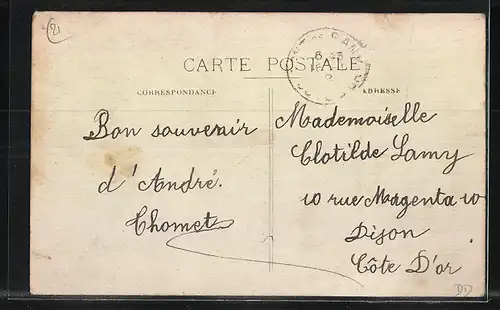 21
CARTE POSTALE
CORRESPONDANCE
ADRESSE
Bon souvenir
d'André.
Chomet
Mademoiselle
Clotilde Lamy
10 rue Magenta 10
Dijon
Côte D'or